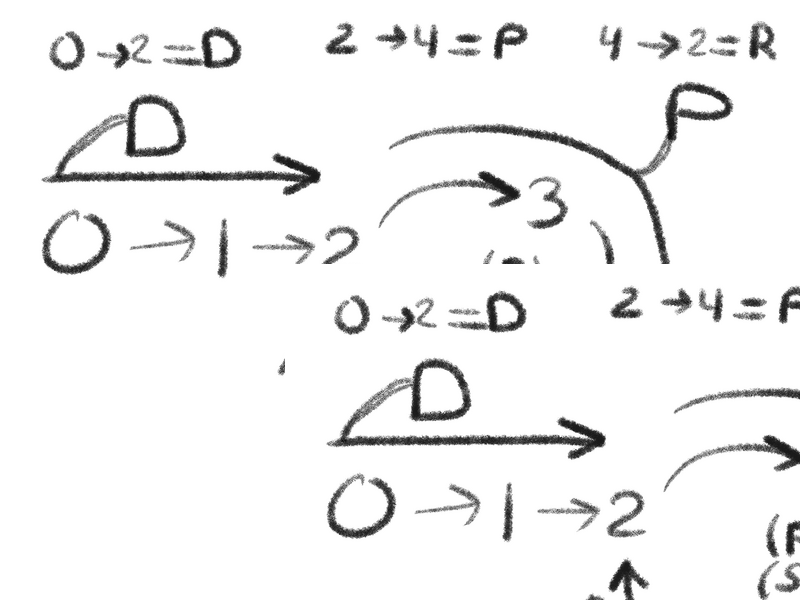 0 → 2 = D 2 → 4 = P 4 → 2 = R
D P
0 → 1 → 2 → 3
0 → 2 = D 2 → 4 = P
D
0 → 1 → 2 →